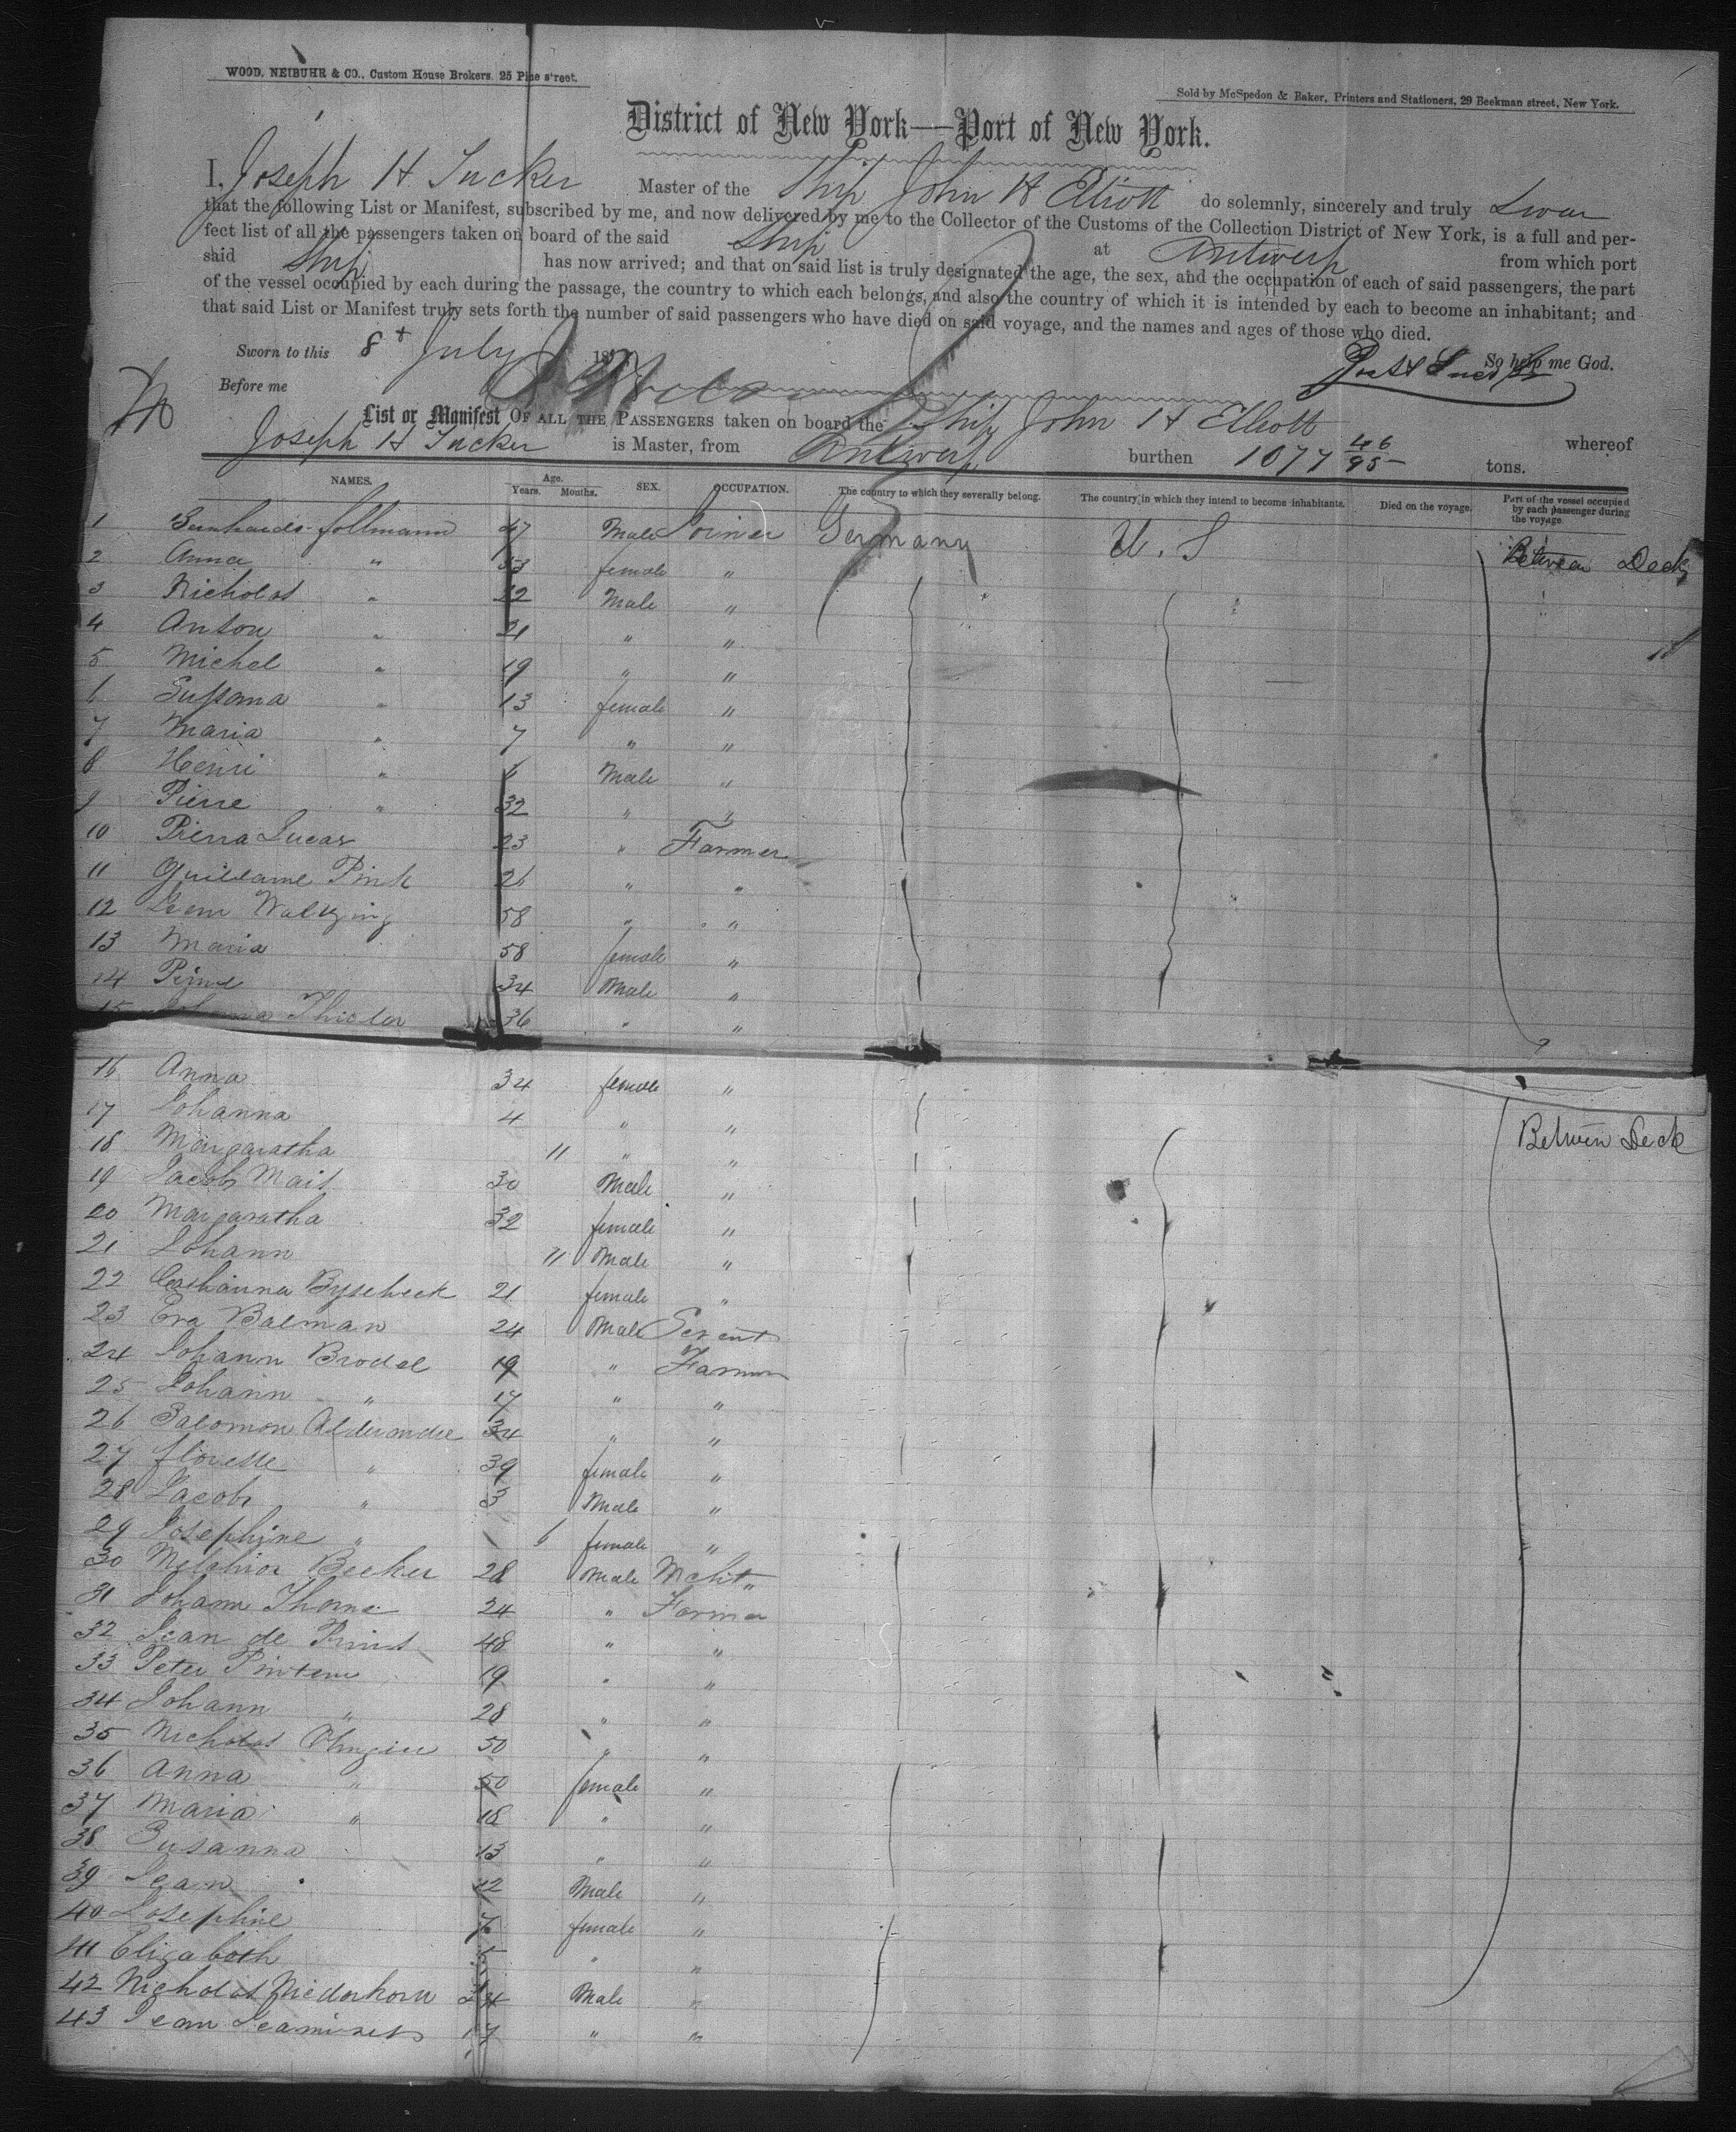 WOOD, NEIBUHR & CO., Custom House Brokers, 25 Pine street.
Sold by McSpedon & Baker, Printers and Stationers, 29 Beekman street, New York.
District of New York—Port of New York.
I, Joseph H Tucker Master of the Ship John H Elliott do solemnly, sincerely and truly Swear
that the following List or Manifest, subscribed by me, and now delivered by me to the Collector of the Customs of the Collection District of New York, is a full and per-
fect list of all the passengers taken on board of the said Ship at Antwerp from which port
said Ship has now arrived; and that on said list is truly designated the age, the sex, and the occupation of each of said passengers, the part
of the vessel occupied by each during the passage, the country to which each belongs, and also the country of which it is intended by each to become an inhabitant; and
that said List or Manifest truly sets forth the number of said passengers who have died on said voyage, and the names and ages of those who died.
Sworn to this 8t July 18 So help me God.
Before me
List or Manifest OF ALL THE PASSENGERS taken on board the Ship John H Elliott whereof
Joseph H Tucker is Master, from Antwerp burthen 1077 46/95 tons.
NAMES. Age. Years. Months. SEX. OCCUPATION. The country to which they severally belong. The country in which they intend to become inhabitants. Died on the voyage. Part of the vessel occupied by each passenger during the voyage.
1 follmann 47 Male Joiner Germany U. S Between Deck
2 Anna " 53 female "
3 Nicholas " 22 Male "
4 Anton " 21 " "
5 Michel " 19 " "
6 Sussana " 13 female "
7 Maria " 7 " "
8 Henri " 6 Male "
9 Pierre " 32 " "
10 Pierra Lucas 23 " Farmer
11 Guillaume Pink 26 " "
12 Waltzing 58 " "
13 Maria 58 female "
14 Pierre 34 Male "
15 36 " "
16 Anna 34 female "
17 Johanna 4 " " Between Deck
18 Margaratha 11 " "
19 Jacob Mais 30 Male "
20 Margaratha 32 female "
21 Johann 11 Male "
22 21 female "
23 Eva Balman 24 Male Servent
24 Johann Brodel 19 " Farmer
25 Johann " 17 " "
26 Salomon 34 " "
27 " 39 female "
28 Jacob " 3 Male "
29 Josephine " 6 female "
30 Melchior Becker 28 Male Mcht "
31 Johann Thome 24 " Farmer
32 Jean de 48 " "
33 Peter 19 " "
34 Johann " 28 " "
35 Nicholas 50 " "
36 Anna " 50 female "
37 Maria " 18 " "
38 Susanna 13 " "
39 Jean 12 Male "
40 Josephine 7 female "
41 Elizabeth 5 " "
42 Nicholas Niederkorn 24 Male "
43 Jean 17 " "